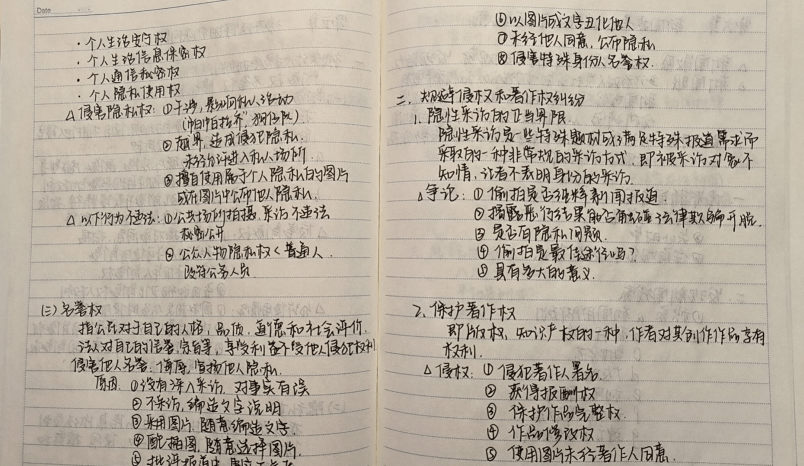 Date
·个人生活安宁权
·个人生活信息保密权
·个人通信秘密权
·个人隐私使用权
△侵害隐私权：①干涉，影响私人活动
（"狗仔队"）
②越界，造成侵犯隐私.
未经许进入私人场所
③擅自使用属于个人隐私的图片
或在图片中公布他人隐私.
△以下行为不违法：①公共场所拍摄、采访不违法
②公众人物隐私权<普通人.
政府公务人员.
(三)名誉权
指公民对于自己的人格，品质，道德和社会评价.
法人对自己的信誉，享受利益不受他人侵犯权利
侵害他人名誉. 他人隐私.
原因. ①没有深入采访，对事实有误
②不采访，编造文字说明
③采用图片，随意编造文字
④配插图，随意选择图片.
⑤批评报道中
⑥以图片或文字丑化他人
⑦未经他人同意，公布隐私
⑧侵害特殊身份人名誉权.
二、规避侵权和著作权纠纷
1. 隐性采访的正当界限
隐性采访是一些特殊题材或满足特殊报道需求而
采取的一种非常规的采访方式，即被采访对象不
知情，记者不表明身份的采访.
△争论：①偷拍是否纯粹新闻报道.
②揭露恶行结果能否能为法律欺骗开脱.
③是否有隐私问题.
④偷拍是最佳途径吗？
⑤具有多大的意义.
2. 保护著作权
即版权，知识产权的一种，作者对其创作作品享有
权利.
△侵权：①侵犯著作人署名.
②获得报酬权
③保护作品完整权.
④作品修改权
⑤使用图片未经著作人同意.